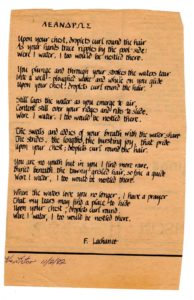 ΛΕΑΝΔΡ/ΣΣ
Upon your chest, droplets curl round the hair
As your hands trace ripples by the pool side:
Were I water, I too would be nestled there.
You plunge and through your strokes the waters tear
like a well-ploughed while and while on you glide
Upon your chest: droplets curl round the hair.
Still laps the water as you emerge to air
Content still over your ridges and ribs to slide.
Were I water, I too would be nestled there.
The swells and eddies of your breath with the water share
The strides, the lengths, the bursting joy, that pride
Upon your chest; droplets curl round the hair.
You are no youth but in you I find more rare,
Buried beneath the tawny hair, so fine a guide
Were I water, I too would be nestled there.
When the waters love you no longer, I have a prayer
That my tears may find a place to hide
Upon your chest; droplets curl round.
Were I water, I too would be nestled there.
F. Lachanet